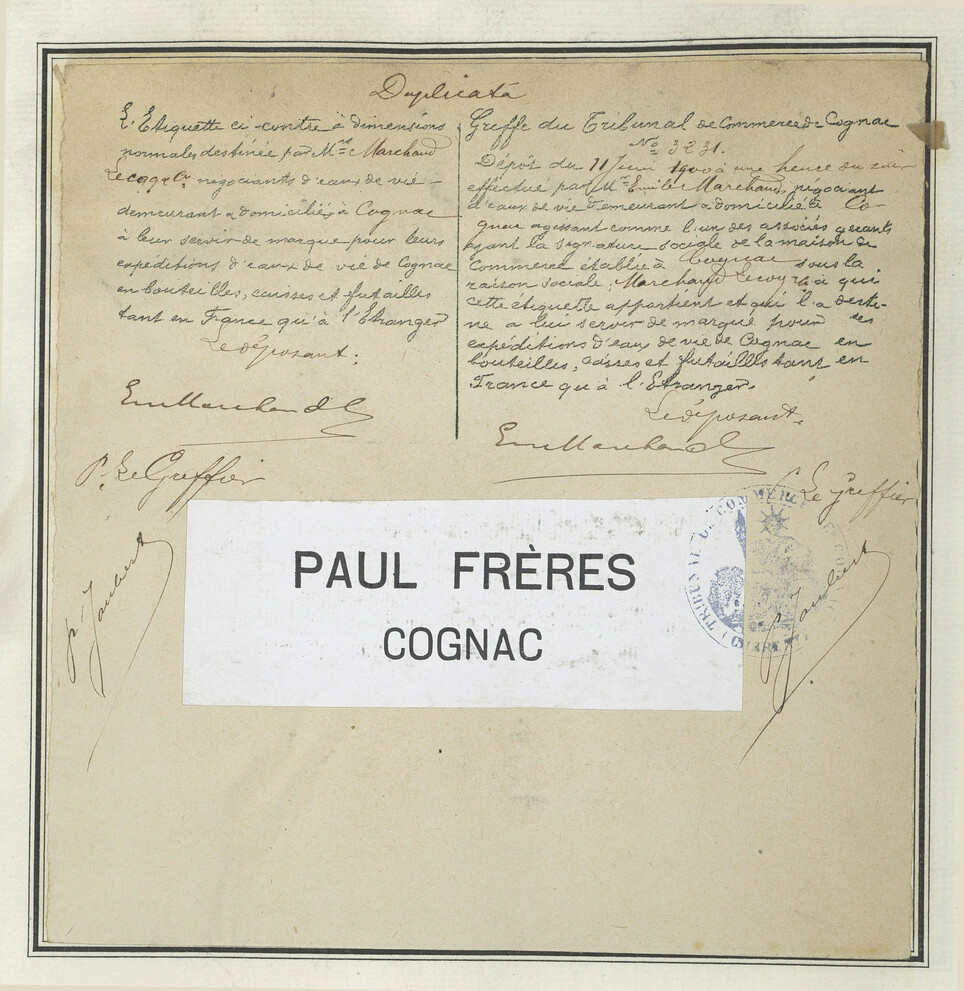 Duplicata
L'Etiquette ci-contre à dimensions
normales destinée par Mrs Marchand
Lecoq & Cie negociants d'eaux de vie
demeurant & domiciliés à Cognac
à leur servir de marque pour leurs
expéditions d'eaux de vie de Cognac
en bouteilles, caisses et futailles
tant en France qu'à l'Etranger
Le déposant:
Em Marchand
Pr. Le Greffier
Greffe du Tribunal de Commerce de Cognac
No 3231.
Dépôt du 11 Juin 1900 à une heure du soir
effectué par Mr Emile Marchand, negociant
d'eaux de vie demeurant & domicilié à Co-
gnac agissant comme l'un des associés gerants
ayant la signature sociale de la maison de
Commerce établie à Cognac sous la
raison sociale: Marchand Lecoq & Cie à qui
cette étiquette appartient et qui l'a desti-
né a lui servir de marque pour ses
expéditions d'eaux de vie de Cognac en
bouteilles, caisses et futailles tant en
France qu'à l'Etranger.
Le déposant.
Em Marchand
Le Greffier
PAUL FRÈRES
COGNAC